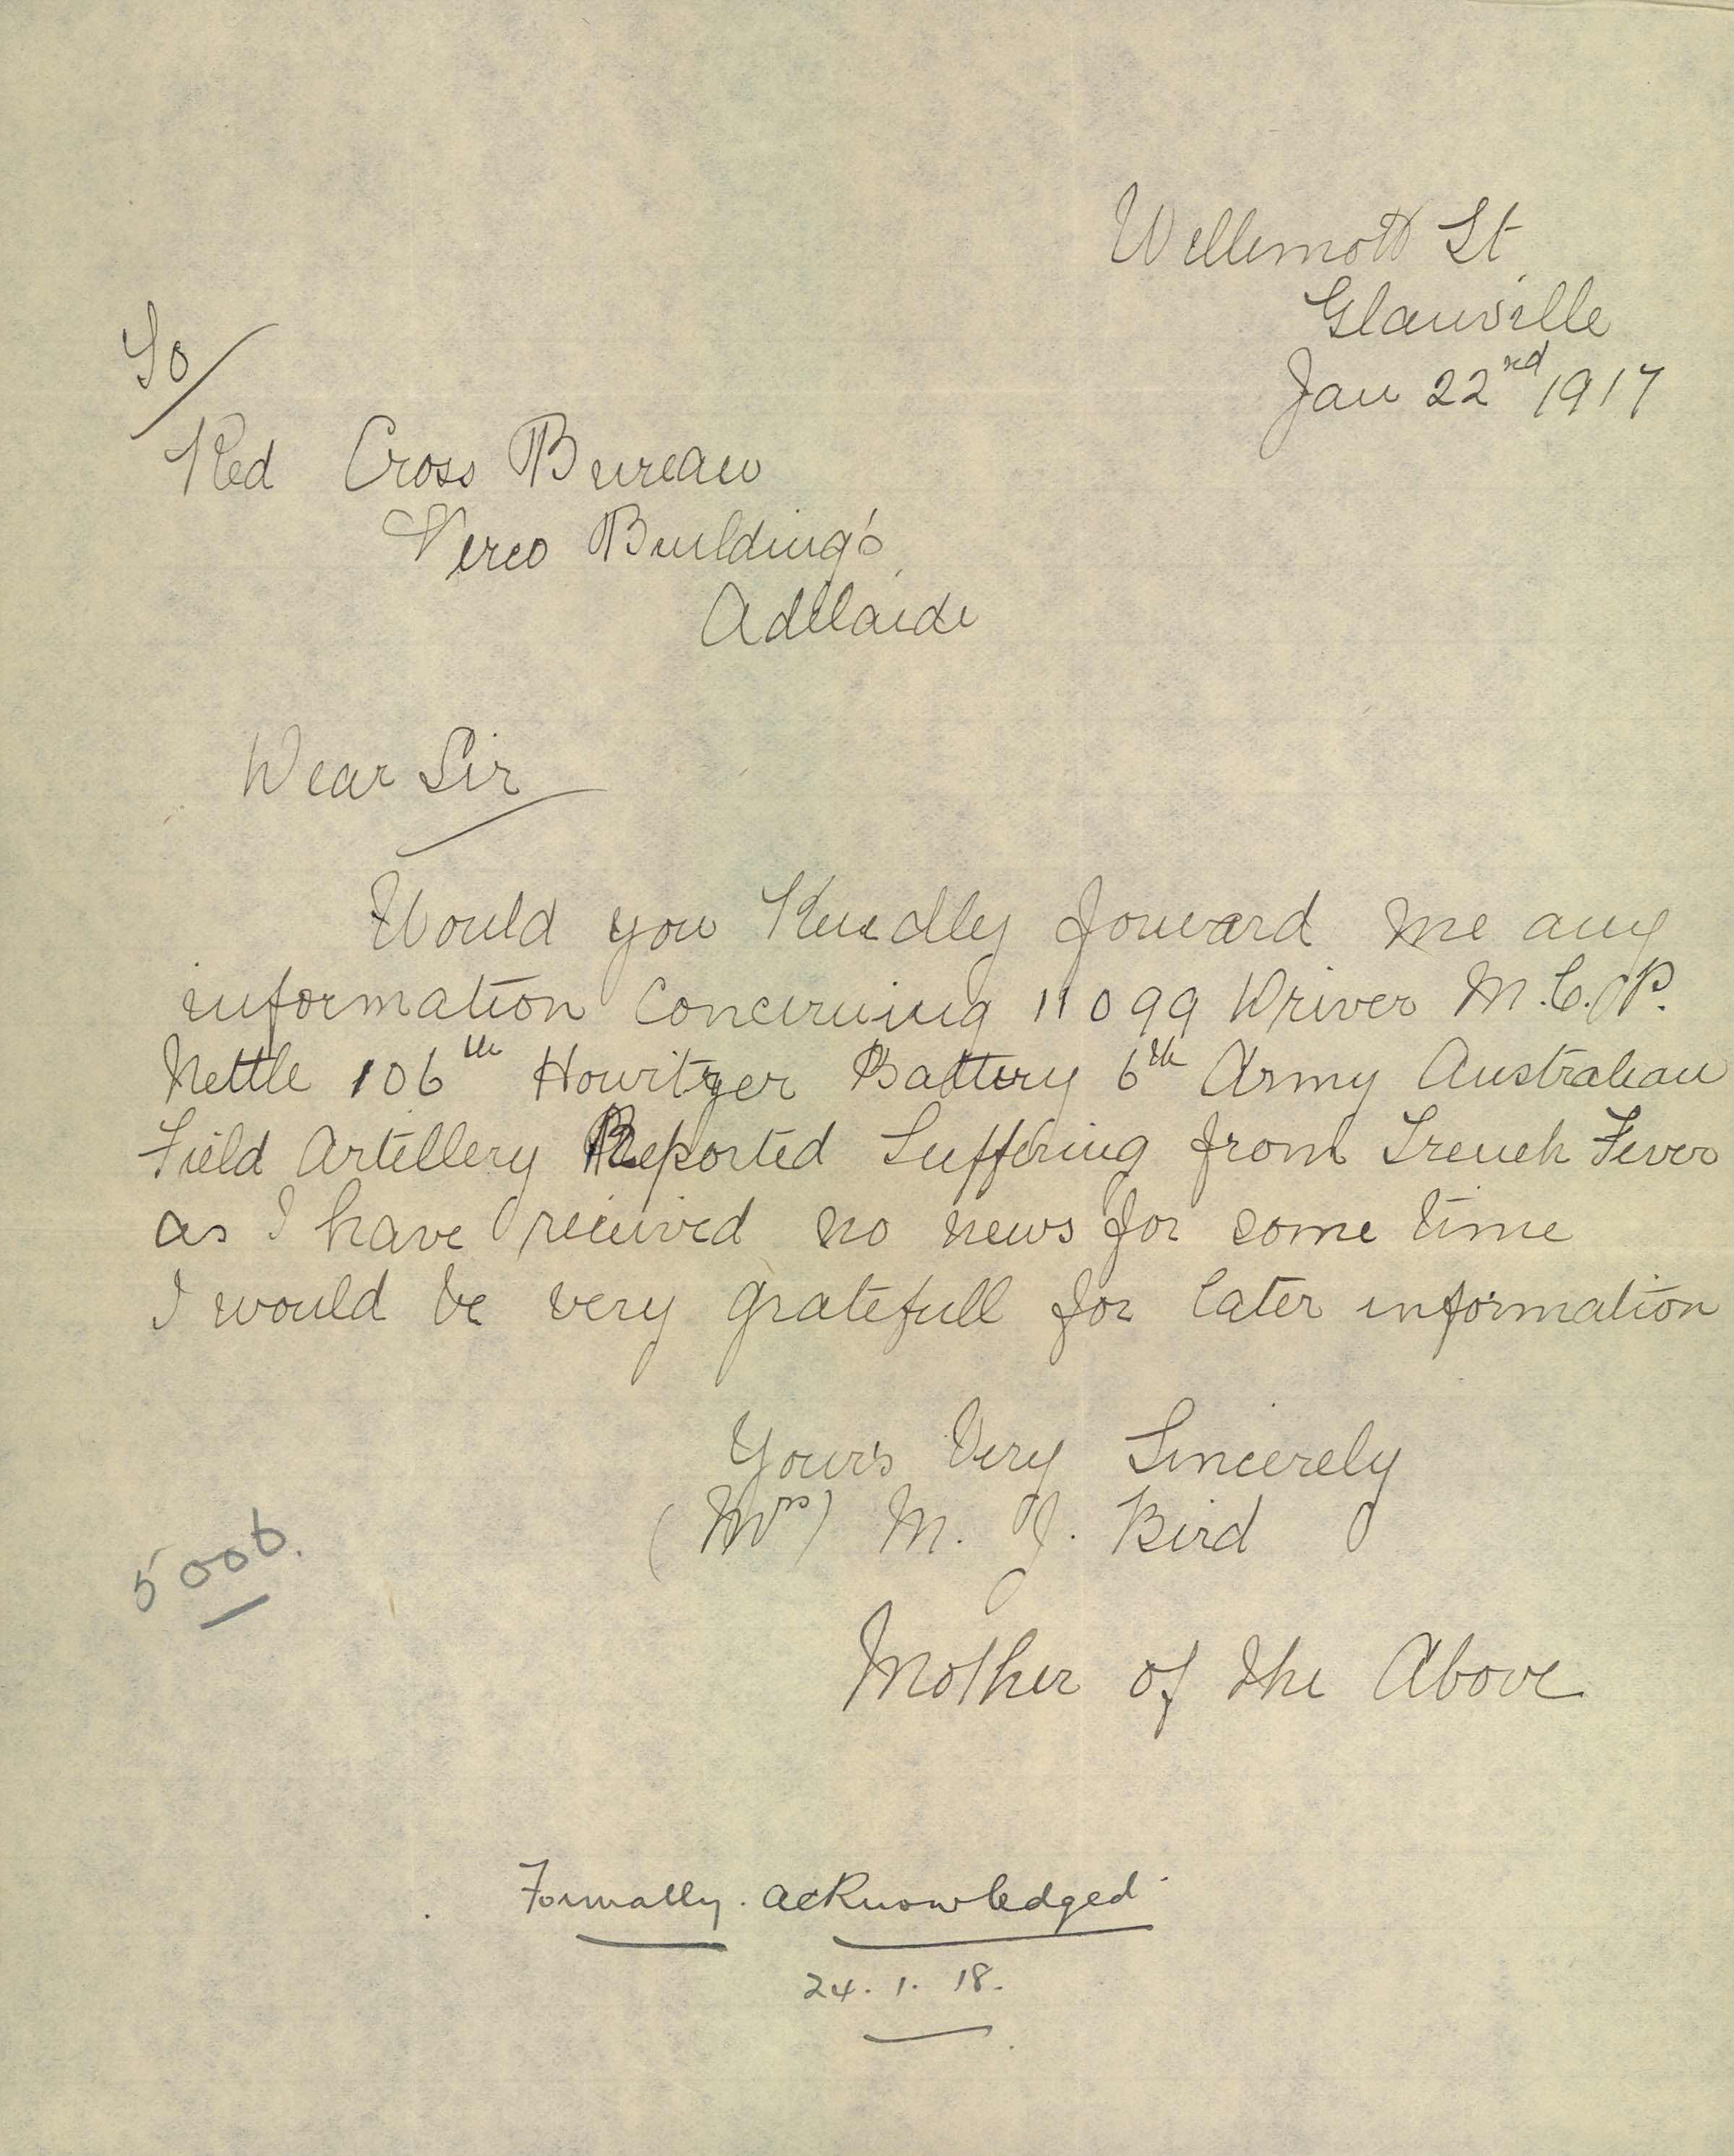 Willmott St
Glanville
Jan 22nd 1917
To
Red Cross Bureau
Verco Building's
Adelaide
Dear Sir
Would you Kindly forward me any
information Concerning 11099 Driver M.C.P.
Nettle 106th Howitzer Battery 6th Army Australian
Field Artillery Reported Suffering from Trench Fever
as I have received no news for some time
I would be very gratefull for later information
Your's Very Sincerely
(Mrs) M. J. Bird
5006.
Mother of the Above
Formally. acknowledged.
24. 1. 18.